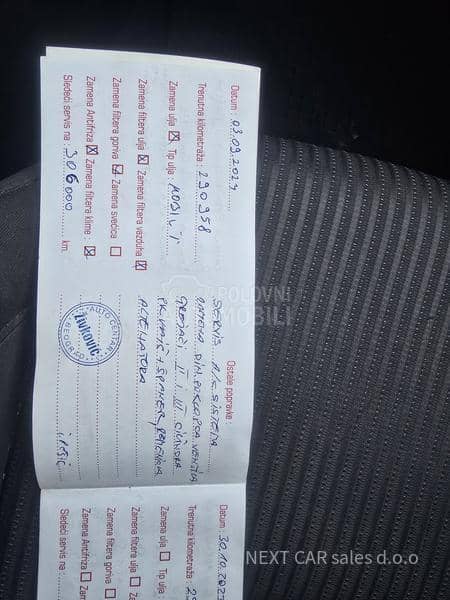 Datum : 03.09.2024
Trenutna kilometraža : 290958
Zamena ulja ☒ Tip ulja : MOBIL 1
Zamena filtera ulja ☒ Zamena filtera vazduha ☑
Zamena filtera goriva ☑ Zamena svećica ☐
Zamena Antifriza ☒ Zamena filtera klime : ☒
Sledeći servis na : 306000 km.
Ostale popravke :
SERVIS A/C SISTEMA
ZAMENA DIH. POKLOPCA VENTILA
GREJAČI II I III CILINDRA
PK KAIŠ + ŠPANER,
ALTENATORA
AUTO CENTAR
ŽIVKOVIĆ
BEOGRAD
POLOVNI
AUTOMOBILI
Datum : 30.10.202
Trenutna kilometraža : 29
Zamena ulja ☐ Tip ulja
Zamena filtera ulja ☐
Zamena filtera goriva ☐
Zamena Antifriza ☐ Za
Sledeći servis na :
NEXT CAR sales d.o.o